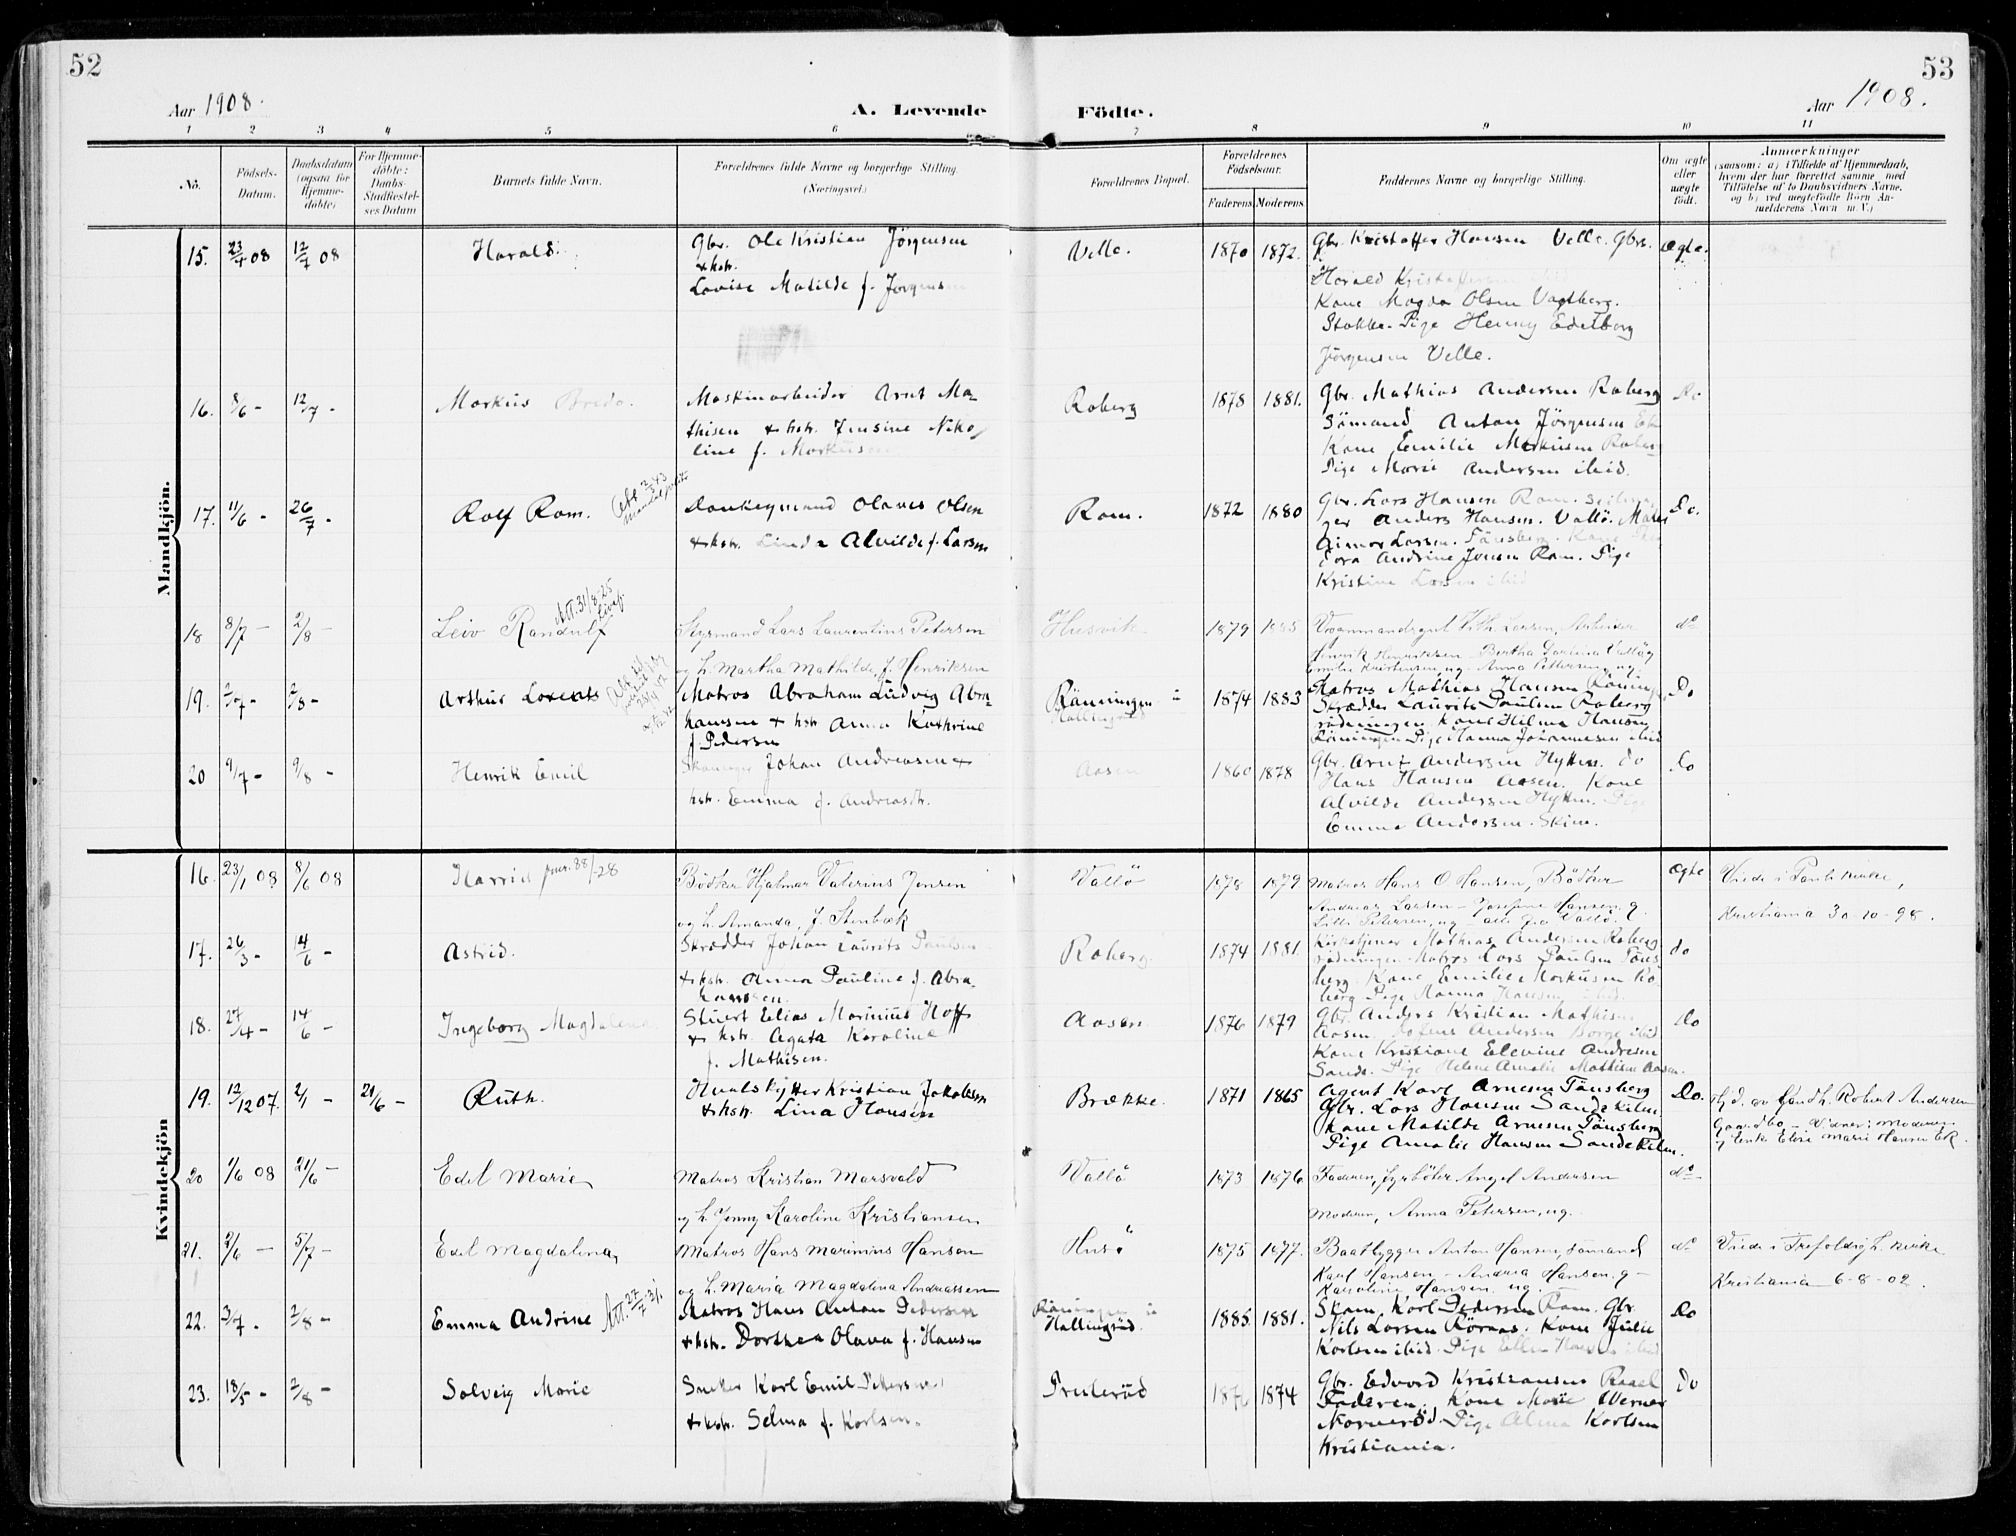 52
53
Aar 1908.
A. Levende
Fødte.
Aar 1908.
1 2 3 4 5 6 7 8 9 10 11
No.
Fødsels-
Datum.
Daabsdatum
(ogsaa for
Hjemme-
døbte)
For Hjemme-
døbte:
Daabs-
Stadfæstel-
ses Datum
Barnets fulde Navn.
Forældrenes fulde Navne og borgerlige Stilling
(Næringsvei)
Forældrenes Bopæl.
Forældrenes
Fødselsaar.
Faderens Moderens
Faddernes Navne og borgerlige Stilling.
Om ægte
eller
uægte
født.
Anmærkninger
(saasom: a) i Tilfælde af Hjemmedaab,
hvem der har forrettet samme med
Tilføielse af to Daabsvidners Navne,
og b) ved uægtefødte Børn An-
melderens Navn m. V.)
Mandkjøn.
15. 23/4 08 12/7 08 Harald.
Gbr. Ole Kristian Jørgensen
& hstr.
Lovise Matilde f. Jørgensen
Velle. 1870 1872.
Gbr. Kristoffer Hansen Velle. Gbr.
Harald Kristoffersen ibid
Kone Magda Olsen Vagtberg.
Stokke. Pige Henny Edelborg
Jørgensen Velle.
Ægte.
16. 8/6 - 12/7 - Markus Bredo.
Maskinarbeider Arnt Ma-
thisen & hstr. Jensine Niko-
line f. Markussen
Roberg 1878 1881.
Gbr. Mathias Andersen Roberg
Sömand Anton Jörgensen Ek
Kone Emilie Markusen Roberg
Pige Marie Andersen ibid.
Do
17. 11/6 - 26/7 - Rolf Ram.
Donkeymand Olaves Olsen
& hstr. Linda Alvilde f. Larsen
Ram. 1872 1880
Gbr. Lars Hansen Ram.
Anders Hansen. Vallö.
Larsen. Tönsberg. Kone
Tora Andrine Jensen Ram. Pige
Kristine Larsen ibid
Do.
18 8/7 - 2/8 - Leiv Randulf
Att. 31/8-25
Styrmand Lars Laurentius Petersen
og h. Martha Mathilde, f. Henriksen
Husvik 1879 1885
Larsen, Arbeider
Henrik Henriksen - Bertha
Emilie Kristensen, ug - Anna Pettersen, ug
do
19. 2/7 - 2/8 - Arthur Lorents
Matros Abraham Ludvig Abra-
hamsen & hstr Anna Kathrine
f. Pedersen
Rönningen i
Hallingrød
1874 1883
Matros Mathias Hansen Röning
Skrædder Laurits Paulsen Roberg
rødningen. Kone Hilma Hansen
Röningen Pige Hanna Johannesen ibid
Do
20 9/7 - 9/8 - Henrik Emil
Johan Andreasen &
hstr. Emma f. Andreasdtr.
Aasen 1860 1878
Gbr. Arnt Andersen Hytten. do
Hans Hansen Aasen. Kone
Alvilde Andersen Hytten. Pige
Emma Andersen. Skine.
Do
Kvindekjön
16. 23/1 08 8/6 08 Harriet
Bödker Hjalmar Valerius Jensen
og h. Amanda, f. Stenbæk
Vallö 1878 1879
Matros Hans O Hansen, Bödker
Andreas Larsen - Josefine Hansen g.
Lilli Petersen, ug - alle fra Vallö.
Ægte
Viede i Pauls kirke,
Kristiania 30-10-98.
17. 26/3 - 14/6 - Astrid.
Skrædder Johan Laurits Paulsen
& hstr. Anna Pauline f. Abra-
hamsen.
Roberg 1874 1881
Kirketjener Mathias Andersen Roberg
rødningen. Matros Lars Paulsen Töns
berg. Kone Emilie Markusen Ro-
berg Pige Hanna Hansen ibid.
do
18. 27/4 - 14/6 - Ingeborg Magdalena
Stuert Elias Marinius Hoff
& hstr. Agata Karoline
f. Mathisen.
Aasen 1876 1879
Gbr. Anders Kristian Mathisen
Aasen. Andersen Borge ibid
Kone Kristiane Elevine Andresen
Sande. Pige Helene Amalie Mathisen Aasen.
Do
19. 12/12 07. 2/1 - 21/6 - Ruth.
Hvalskytter Kristian Jakobsen
& hstr. Lina Hansen
Brække. 1871 1865
Agent Karl Arnesen Tönsberg
Gbr. Lars Hansen Sandekilen
Kone Matilde Arnesen Tönsberg
Pige Amalie Hansen Sandekilen.
Do.
Hjd. av Landh. Robert Andersen
- Vidner: Moderen
og Enke Elise Marie Hansen Ek.
20 1/6 08 21/6 - Edel Marie
Matros Kristian Marsvold
og h. Jenny Karoline Kristiansen
Vallö 1873 1876
Faderen, fyrböter Angel Andersen
Moderen, Anna Petersen, ug.
do
21. 2/6 - 5/7 - Edel Magdalena
Matros Hans Marinius Hansen
og h. Maria Magdalena Andreassen
Husö 1875 1877.
Baatbygger Anton Hansen, sömand
Karl Hansen - Andrea Hansen. g -
Karoline Hansen. ug.
do
Viede i Trefoldigh. kirke
Kristiania 6-8-02.
22. 3/7 - 2/8 - Emma Andrine
Matros Hans Anton Pedersen
& hstr. Dorthea Olava f. Hansen
Röningen i
Hallingrød.
1885 1881.
Skom. Karl Pedersen Ram. Gbr.
Nils Larsen Rörnæs. Kone Julie
Karlsen ibid. Pige Ellen Hansen ibid
Do
23. 18/5 - 2/8 - Solveig Marie
Snekker Karl Emil Pettersen
& hstr. Selma f. Karlsen.
Presterød 1876 1874
Gbr. Edvard Kristiansen Raael
Faderen. Kone Marie Werner
Narverød. Pige Alma Karlsen
Kristiania.
Do